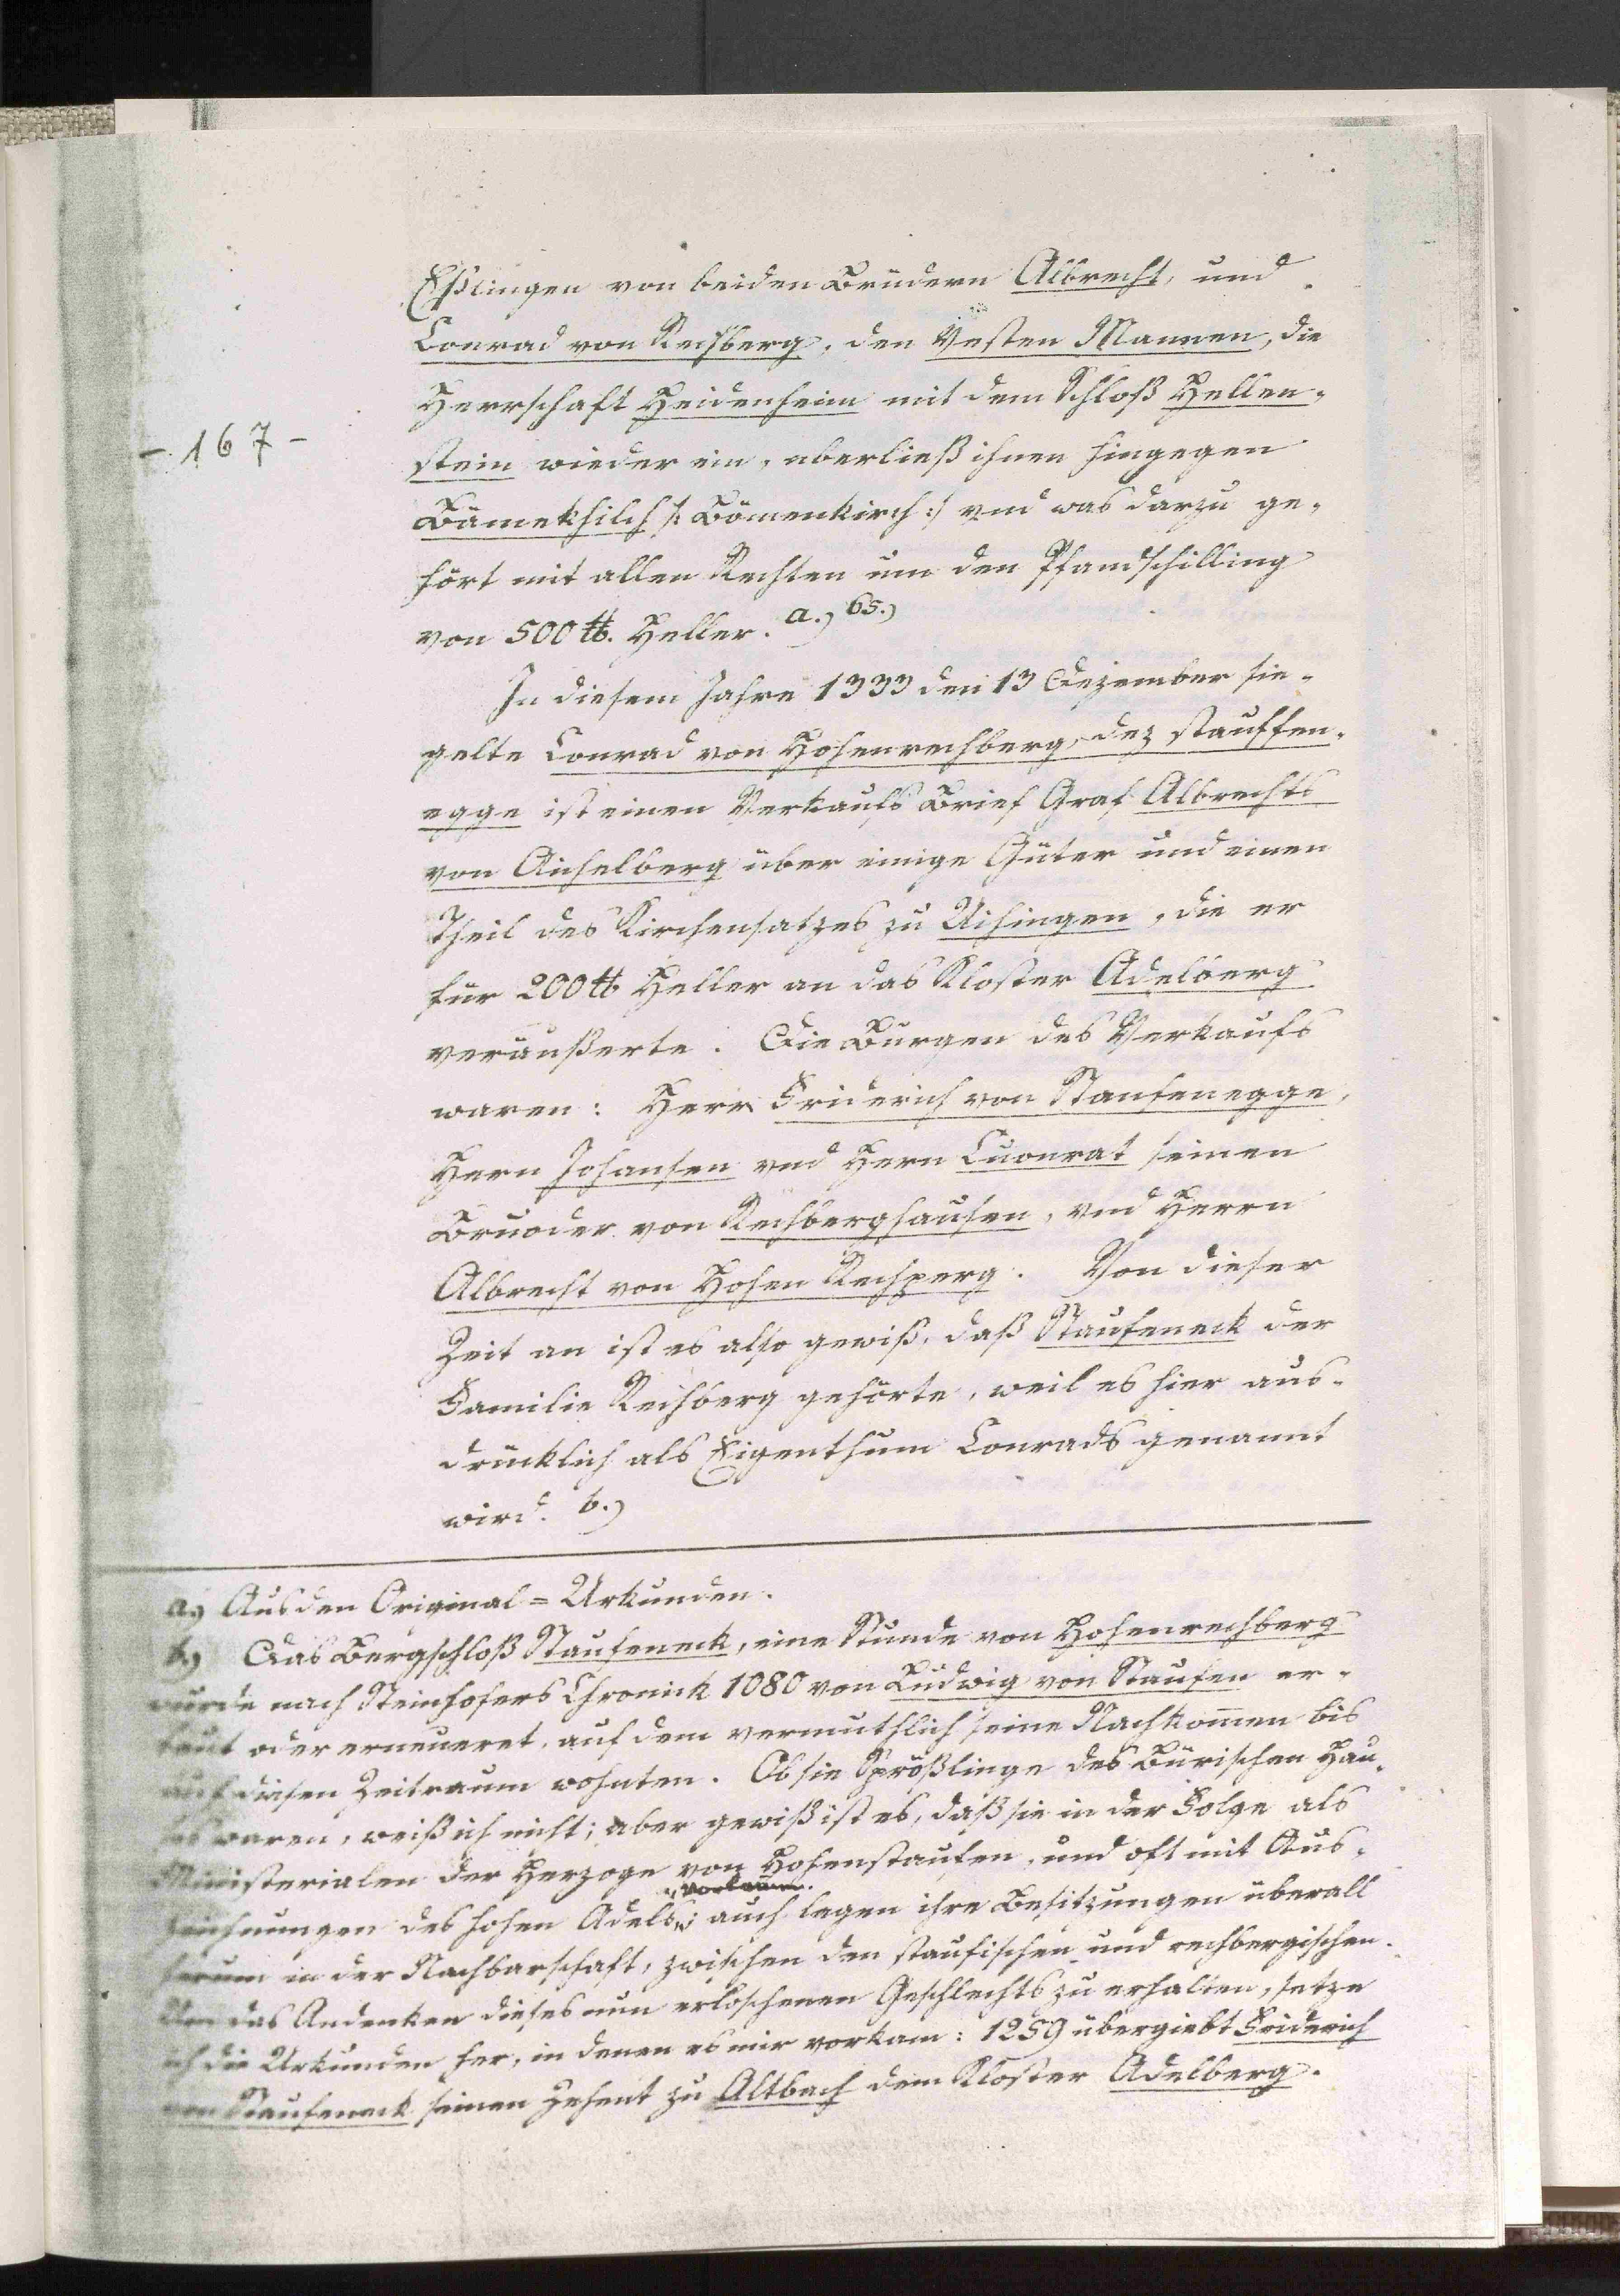 Eßlingen von beiden Brüdern Albrecht, und
Conrad von Rechberg, den Vesten Mannen, die
Herrschaft Heidenheim mit dem Schloß Hellen-
- 167 -
stein wieder ein, uberließ ihnen hingegen
Bämekhilch /: Bömenkirch :/ vnd was darzu ge-
hört mit allen Rechten um den Pfandschilling
von 500 ℔. Heller. a.) 65.)
In diesem Jahre 1333 den 13 Dezember sie-
gelte Conrad von Hohenrechberg, dez stauffen-
egge ist einen Verkaufs Brief Graf Albrechts
von Aichelberg über einige Güter und einen
Theil des Kirchensatzes zu Uihingen, die er
für 200 ℔ Heller an das Kloster Adelberg
veräußerte. Die Burgen des Verkaufs
waren: Herr Friderich von Staufenegge,
Hern Johansen vnd Hern Cuonrat seinen
Bruoder von Rechberghausen, vnd Herrn
Albrecht von Hohen Rechperg. Von dieser
Zeit an ist es also gewiß, daß Staufeneck der
Familie Rechberg gehörte, weil es hier aus-
drücklich als Eigenthum Conrads genannt
wird. b.)
a.) Aus den Original = Urkunden.
b.) Das Bergschloß Staufeneck, eine Stunde von Hohenrechberg
wurde nach Steinhofers Chronick 1080 von Ludwig von Staufen er-
baut oder erneueret, auf dem vermuthlich seine Nachkom̄en bis
auf diesen Zeitraum wohnten. Ob sie Sprößlinge des Bürischen Hau-
ses waren, weiß ich nicht; aber gewiß ist es, daß sie in der Folge als
Ministerialen der Herzoge von Hohenstaufen, und oft mit Aus-
zeichnungen des hohen Adels „vorkam̄en.; auch lagen ihre Besitzungen überall
herum in der Nachbarschaft, zwischen den staufischen und rechbergischen.
Um das Andenken dieses nun erloschenen Geschlechts zu erhalten, setze
ich die Urkunden her, in denen es mir vorkam: 1259 übergiebt Friderich
von Staufeneck seinen Zehent zu Altbach dem Kloster Adelberg.